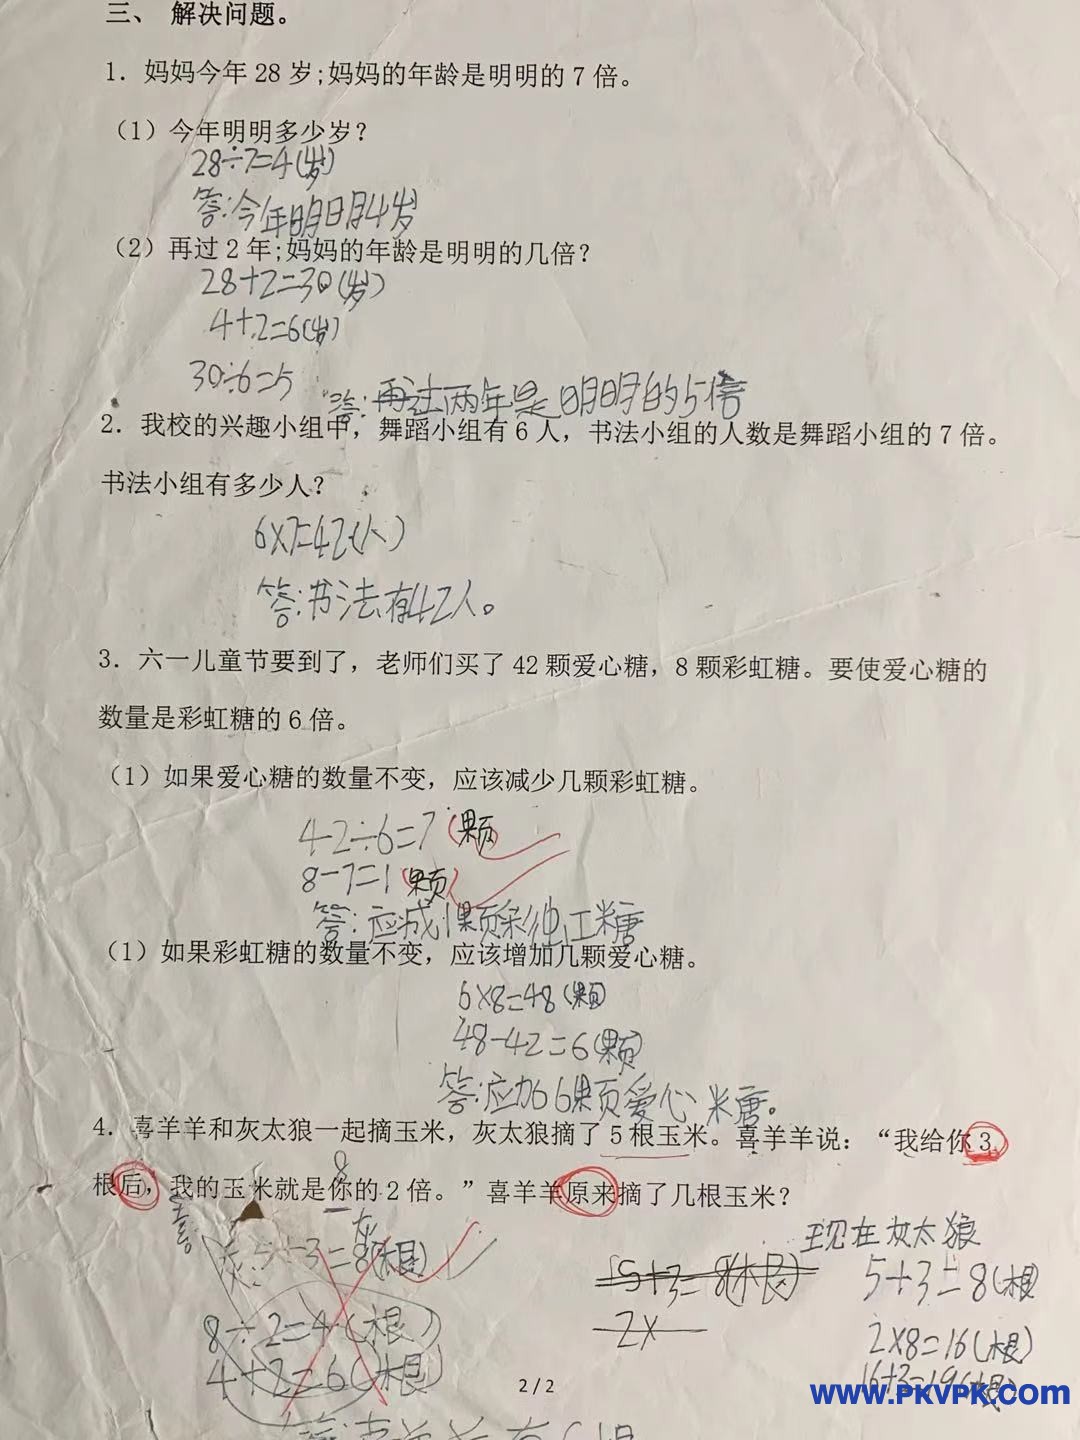 三、 解决问题。
1．妈妈今年 28 岁;妈妈的年龄是明明的 7 倍。
（1）今年明明多少岁？
28÷7=4(岁)
答:今年明明4岁
（2）再过 2 年;妈妈的年龄是明明的几倍？
28+2=30(岁)
4+2=6(岁)
30÷6=5
答:再过两年是明明的5倍
2．我校的兴趣小组中，舞蹈小组有 6 人，书法小组的人数是舞蹈小组的 7 倍。
书法小组有多少人？
6×7=42(人)
答:书法有42人。
3．六一儿童节要到了，老师们买了 42 颗爱心糖，8 颗彩虹糖。要使爱心糖的
数量是彩虹糖的 6 倍。
（1）如果爱心糖的数量不变，应该减少几颗彩虹糖。
42÷6=7(颗)
8-7=1(颗)
答:应减1颗彩虹糖
（1）如果彩虹糖的数量不变，应该增加几颗爱心糖。
6×8=48(颗)
48-42=6(颗)
答:应加6颗爱心糖。
4．喜羊羊和灰太狼一起摘玉米，灰太狼摘了 5 根玉米。喜羊羊说：“我给你 3
根后，我的玉米就是你的 2 倍。”喜羊羊原来摘了几根玉米？
8
喜
灰
5+3=8(根)
8÷2=4(根)
4+2=6(根)
5+3=8(根)
2×
现在灰太狼
5+3=8(根)
2×8=16(根)
16+3=19(根)
2 / 2
www.PKVPK.com